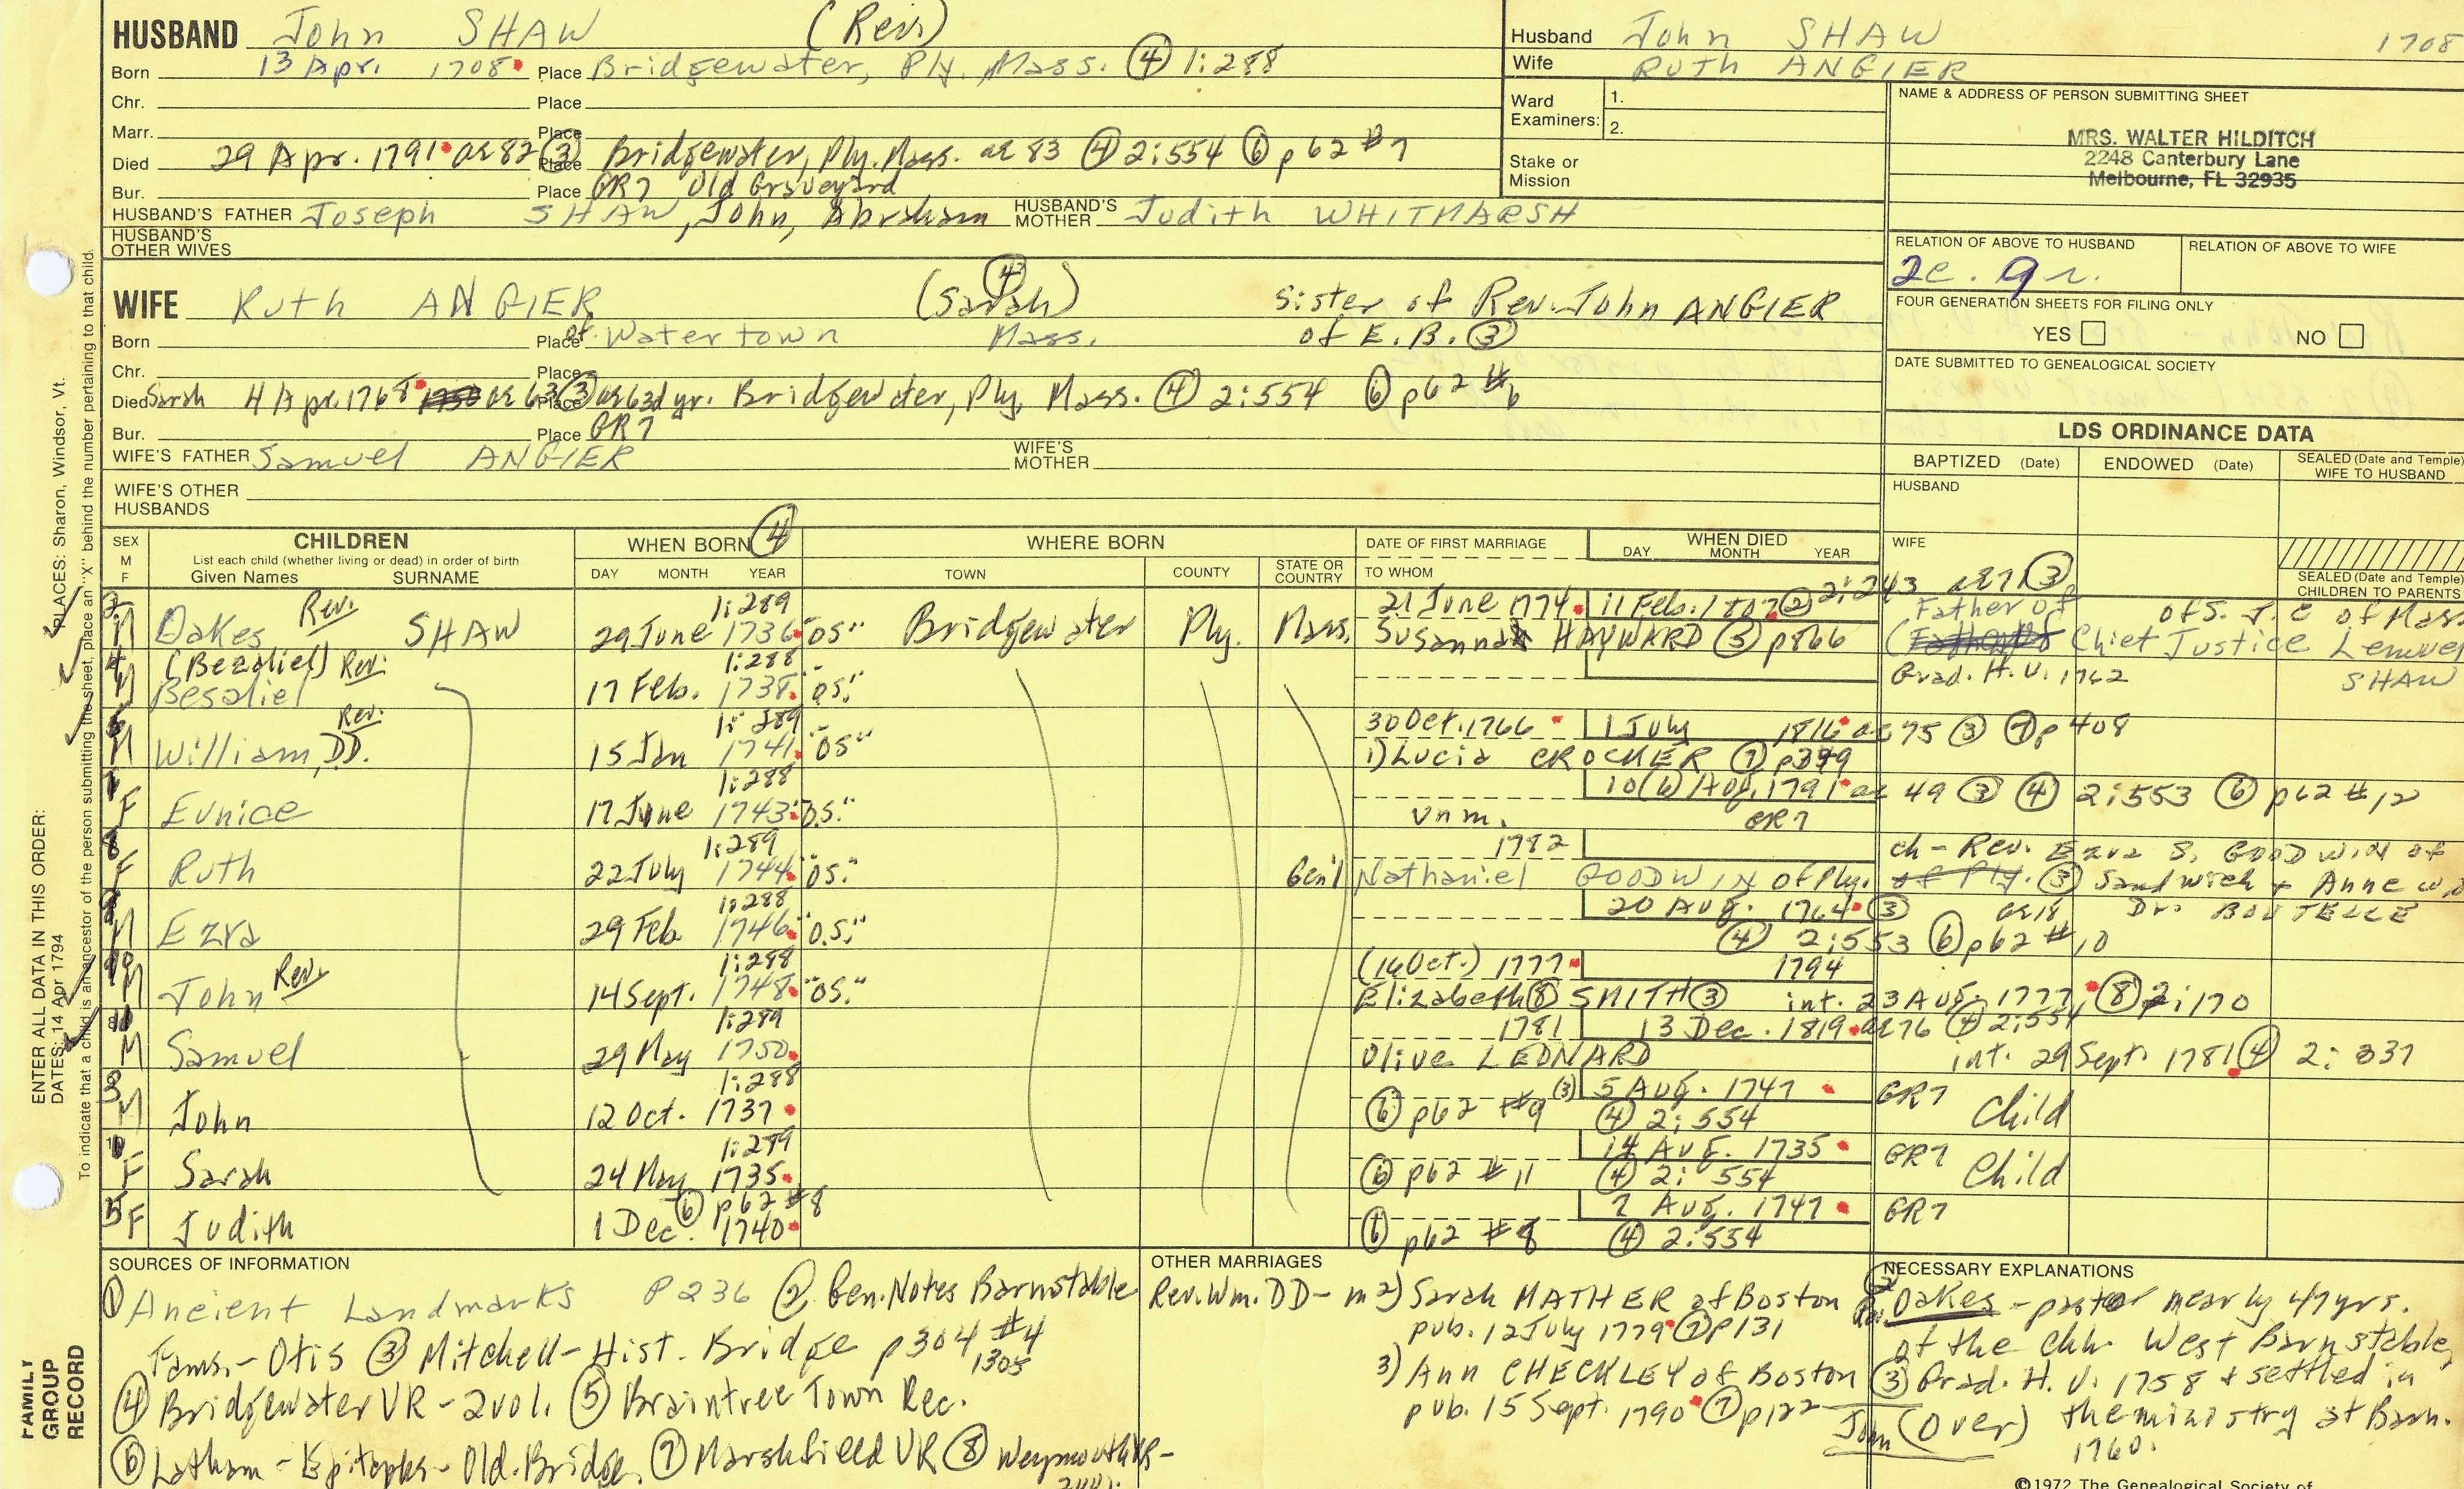 HUSBAND John SHAW (Rev.)
Born 13 Apr. 1708 Place Bridgewater, Ply. Mass. ④ 1:288
Chr. Place
Marr. Place
Died 29 Apr. 1791 ae 82 ③ Place Bridgewater, Ply. Mass. ae 83 ④ 2:554 ⑥ p62 #7
Bur. Place GR7 Old Graveyard
HUSBAND'S FATHER Joseph SHAW, John, Abraham HUSBAND'S MOTHER Judith WHITMARSH
HUSBAND'S OTHER WIVES
Husband John SHAW 1708
Wife RUTH ANGIER
Ward Examiners: 1.
2.
Stake or Mission
NAME & ADDRESS OF PERSON SUBMITTING SHEET
MRS. WALTER HILDITCH
2248 Canterbury Lane
Melbourne, FL 32935
RELATION OF ABOVE TO HUSBAND RELATION OF ABOVE TO WIFE
2c. 9r.
FOUR GENERATION SHEETS FOR FILING ONLY
YES NO
DATE SUBMITTED TO GENEALOGICAL SOCIETY
WIFE Ruth ANGIER (Sarah) ④ Sister of Rev. John ANGIER
Born Place of Watertown Mass. of E. B. ③
Chr. Place
Died Sarah 4 Apr. 1768 1750 ae 63 ③ Place ae 63d yr. Bridgewater, Ply. Mass. ④ 2:554 ⑥ p62 #6
Bur. Place GR7
WIFE'S FATHER Samuel ANGIER WIFE'S MOTHER
WIFE'S OTHER HUSBANDS
LDS ORDINANCE DATA
BAPTIZED (Date) ENDOWED (Date) SEALED (Date and Temple) WIFE TO HUSBAND
HUSBAND
WIFE
SEALED (Date and Temple) CHILDREN TO PARENTS
SEX M F CHILDREN List each child (whether living or dead) in order of birth Given Names SURNAME
WHEN BORN ④ DAY MONTH YEAR
WHERE BORN TOWN COUNTY STATE OR COUNTRY
DATE OF FIRST MARRIAGE TO WHOM
WHEN DIED DAY MONTH YEAR
1:289 21 June 1774 11 Feb. 1807 ② 2:243 ae 71 ③
2 M Oakes Rev. SHAW 29 June 1736 "OS" Bridgewater Ply. Mass. Susannah HAYWARD ③ p866
Father of of S. J. C of Mass
(Father of Chief Justice Lemuel SHAW
4 M (Bezaliel) Rev. Besaliel 1:288 17 Feb. 1738 "OS." Grad. H. U. 1762
6 M William, DD. Rev. 1:289 15 Jan 1741 "OS" 30 Oct. 1766 1 July 1816 ae 75 ③ ⑦ p 408
1) Lucia CROCKER ⑦ p349
7 F Eunice 1:288 17 June 1743 "O.S." unm. 10 (6) Aug. 1791 ae 49 ③ ④ 2:553 ⑥ p62 #12
GR7
8 F Ruth 1:289 22 July 1744 "OS." 1782
Gen'l Nathaniel GOODWIN of Ply.
ch - Rev. Ezra S. GOODWIN of
of Ply. ③ Sandwich + Anne w
Dr. BOUTELLE
9 M Ezra 1:288 29 Feb 1746 "O.S." 20 Aug. 1764 ③ ae 18
④ 2:553 ⑥ p62 #10
10 M John Rev. 1:288 14 Sept. 1748 "OS." (16 Oct.) 1777 1794
Elizabeth ⑧ SMITH ③ int. 23 Aug. 1777, ⑧ 2:170
11 M Samuel 1:289 29 May 1750 1781 13 Dec. 1819 ae 76 ④ 2:554
Olive LEONARD int. 29 Sept. 1781 ④ 2:337
3 M John 1:288 12 Oct. 1737 ⑥ p62 #9 (3) 5 Aug. 1747 ④ 2:554 GR7 Child
1 F Sarah 1:289 24 May 1735 ⑥ p62 #11 14 Aug. 1735 ④ 2:554 GR7 Child
5 F Judith ⑥ p62 #8 1 Dec. 1740 ⑥ p62 #8 2 Aug. 1747 ④ 2:554 GR7
SOURCES OF INFORMATION
① Ancient Landmarks P236 ② Gen. Notes Barnstable
Fams. - Otis ③ Mitchell - Hist. Bridge p304 #4
1305
④ Bridgewater VR - 2 vol. ⑤ Braintree Town Rec.
⑥ Latham - Epitaphs - Old. Bridge. ⑦ Marshfield VR ⑧ Weymouth VR -
2 vol.
OTHER MARRIAGES
Rev. Wm. DD - m 2) Sarah MATHER of Boston
pub. 12 July 1779 ⑦ p131
3) Ann CHECKLEY of Boston
pub. 15 Sept. 1790 ⑦ p122
NECESSARY EXPLANATIONS
② Rev. Oakes - pastor nearly 47 yrs.
of the chh. West Barnstable,
③ Grad. H. U. 1758 + settled in
the ministry at Barn.
1760.
John (over)
©1972 The Genealogical Society of
ENTER ALL DATA IN THIS ORDER:
DATES: 14 Apr 1794 PLACES: Sharon, Windsor, Vt.
To indicate that a child is an ancestor of the person submitting the sheet, place an "X" behind the number pertaining to that child.
FAMILY GROUP RECORD